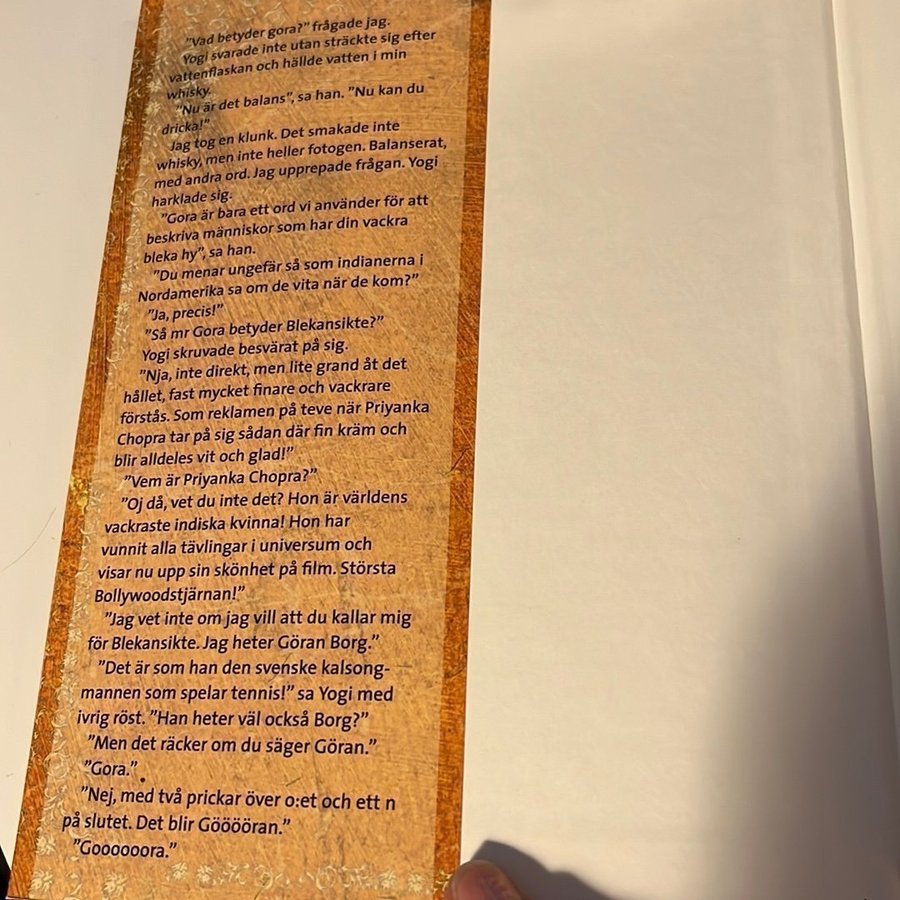 ”Vad betyder gora?” frågade jag.
Yogi svarade inte utan sträckte sig efter
vattenflaskan och hällde vatten i min
whisky.
”Nu är det balans”, sa han. ”Nu kan du
dricka!”
Jag tog en klunk. Det smakade inte
whisky, men inte heller fotogen. Balanserat,
med andra ord. Jag upprepade frågan. Yogi
harklade sig.
”Gora är bara ett ord vi använder för att
beskriva människor som har din vackra
bleka hy”, sa han.
”Du menar ungefär så som indianerna i
Nordamerika sa om de vita när de kom?”
”Ja, precis!”
”Så mr Gora betyder Blekansikte?”
Yogi skruvade besvärat på sig.
”Nja, inte direkt, men lite grand åt det
hållet, fast mycket finare och vackrare
förstås. Som reklamen på teve när Priyanka
Chopra tar på sig sådan där fin kräm och
blir alldeles vit och glad!”
”Vem är Priyanka Chopra?”
”Oj då, vet du inte det? Hon är världens
vackraste indiska kvinna! Hon har
vunnit alla tävlingar i universum och
visar nu upp sin skönhet på film. Största
Bollywoodstjärnan!”
”Jag vet inte om jag vill att du kallar mig
för Blekansikte. Jag heter Göran Borg.”
”Det är som han den svenske kalsong-
mannen som spelar tennis!” sa Yogi med
ivrig röst. ”Han heter väl också Borg?”
”Men det räcker om du säger Göran.”
”Gora.”
”Nej, med två prickar över o:et och ett n
på slutet. Det blir Gööööran.”
”Goooooora.”